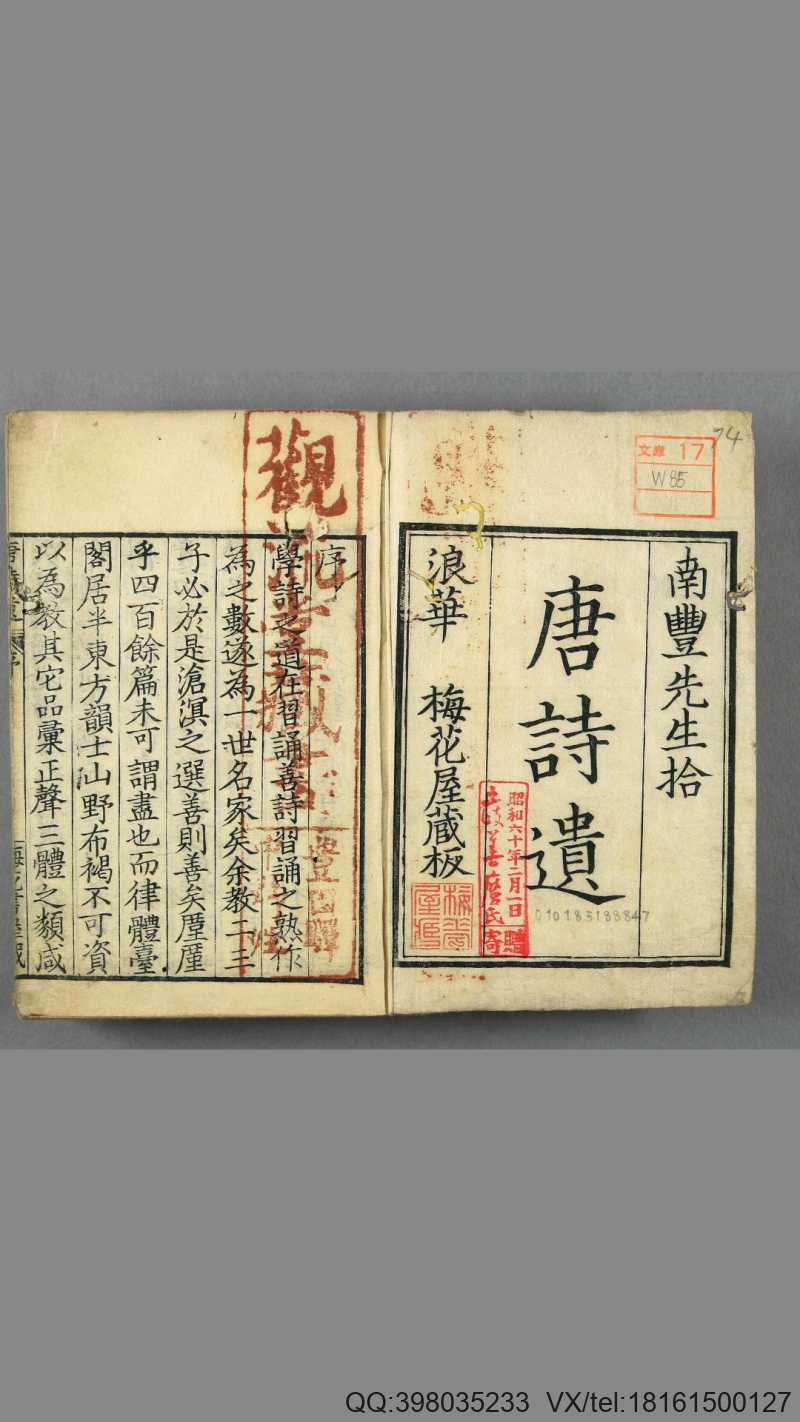 南豐先生拾
唐詩遺
浪華 梅花屋蔵板
文庫 17
W85
74
昭和六十年二月一日
寄贈
010183188847
序
學詩之道在習誦善詩習誦之熟作
為之數遂為一世名家矣余教二三
子必於是滄溟之選善則善矣厪厪
乎四百餘篇未可謂盡也而律體臺
閣居半東方韻士山野布褐不可資
以為教其它品彙正聲三體之類咸
觀
QQ:398035233 VX/tel:18161500127